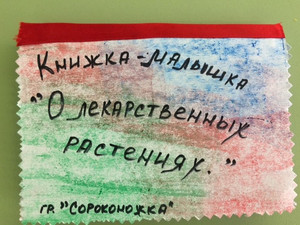 Книжка-малышка
"О лекарственных
растениях."
гр. "Сороконожка"